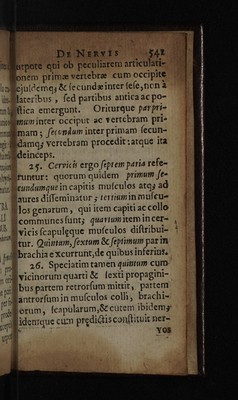 DE NERVIS 541
utpote qui ob peculiarem articulati-
onem primæ vertebræ cum occipite
ejusdemq; & secundæ inter sese, non à
lateribus, sed partibus antica ac po-
stica emergunt. Oriturque par pri-
mum inter occiput ac vertebram pri-
mam; secundum inter primam secun-
damq; vertebram procedit: atque ita
deinceps.
25. Cervicis ergo septem paria refe-
runtur: quorum quidem primum se-
cundumque in capitis musculos atq; ad
aures disseminatur; tertium in muscu-
los genarum, qui item capiti ac collo
communes sunt; quartum item in cer-
vicis scapulęque musculos distribui-
tur. Quintum, sextum & septimum par in
brachia excurrunt, de quibus inferius.
26. Speciatim tamen quintum cum
vicinorum quarti & sexti propagini-
bus partem retrorsum mittit, partem
antrorsum in musculos colli, brachi-
orum, scapularum, & eutem ibidem;
identque cum prędictis constituit ner-
vos